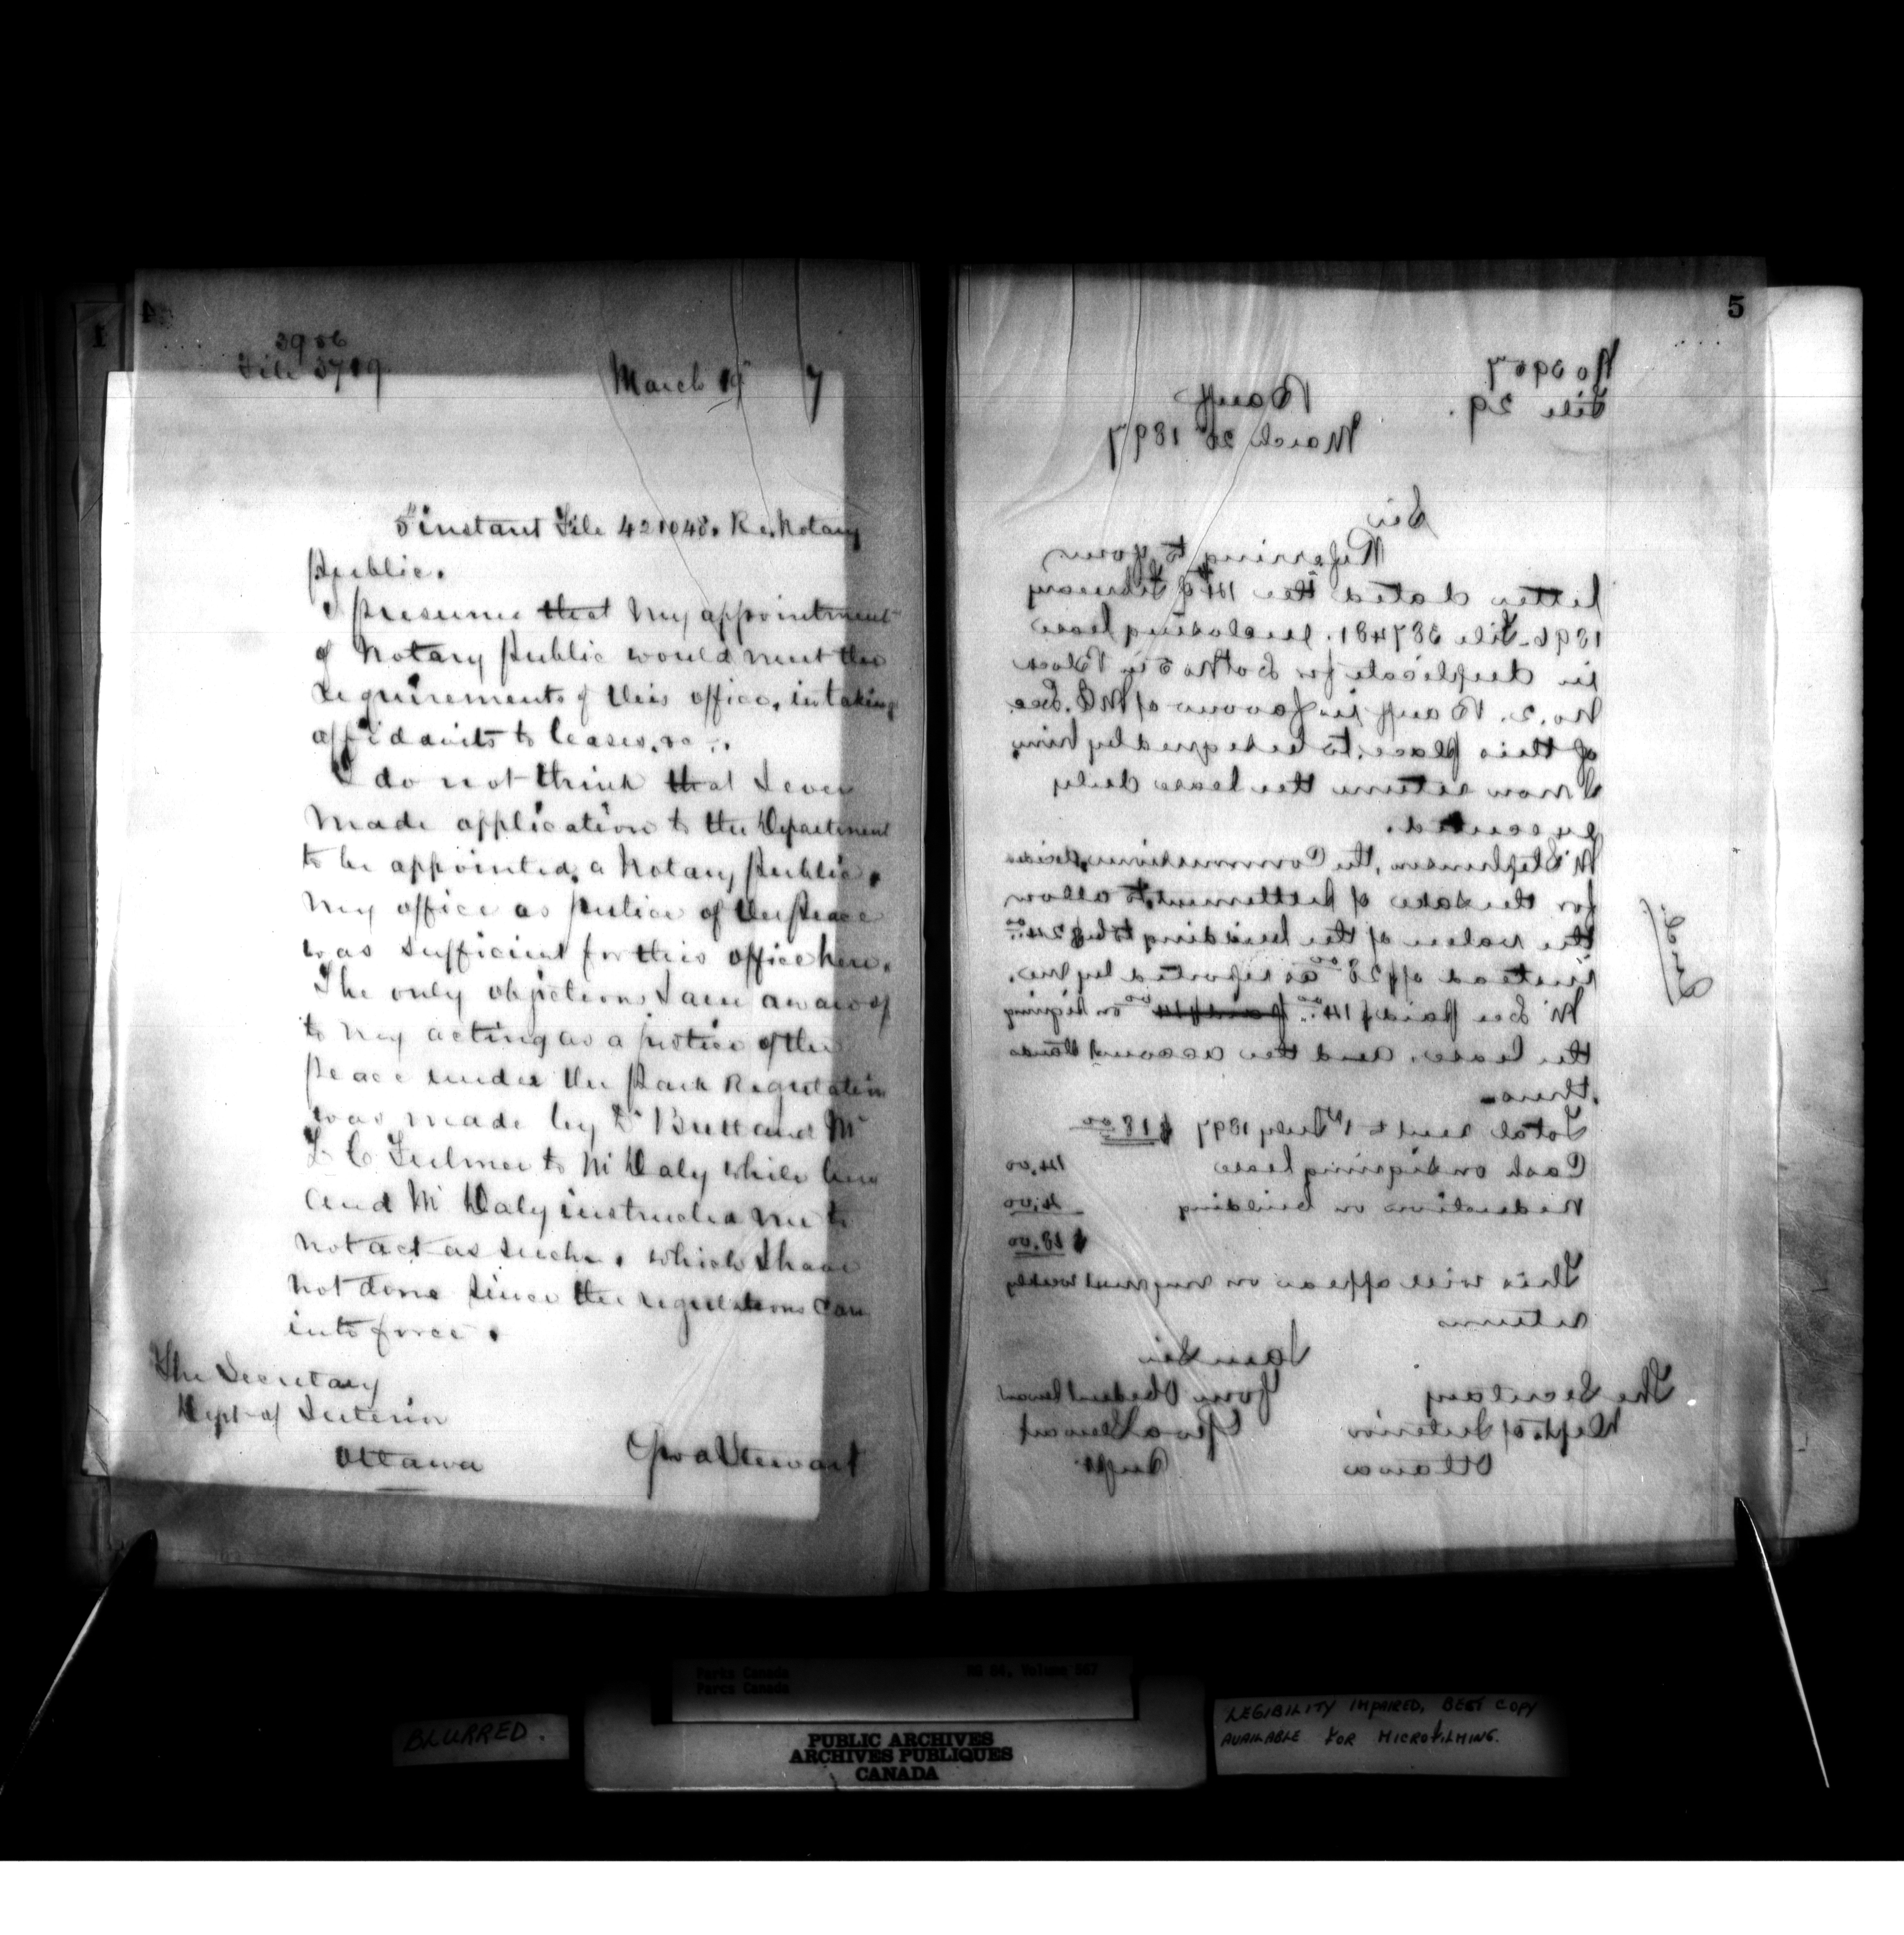 4
1
3956
File 3719
March 19 7
5 instant File 421048. Re. Notary
Public.
I presume that my appointment
of Notary Public would meet the
requirements of this office, in taking
affidavits to leases, &c.
I do not think that I ever
made application to the Department
to be appointed a Notary Public.
My office as Justice of the Peace
was sufficient for this office here.
The only objections I am aware of
to my acting as a Justice of the
Peace under the Park Regulation
was made by Dr Brett and Mr
L C Fulmer to Mr Daly while here
and Mr Daly instructed me to
not act as such, which I have
not done since the regulations came
into force.
The Secretary
Dept of Interior
Ottawa
Geo A Stewart
5
No 3957
File 29.
Banff
March 20 1897
Sir
Referring to your
letter dated the 14th of February
1896 File 387481. enclosing lease
in duplicate for Lot No 5 in Block
No. 2. Banff in favour of Mr Lee
of this place, to be signed by him,
I now return the lease duly
executed.
Mr Stephenson, the Commissioner, decided
for the sake of settlement, to allow
the value of the building to be $24.00
instead of $28.00 as reported by me.
Mr Lee paid $14.00 paid $14.00 on signing
the lease. and the account stands
thus.
Total rent to 1st July 1897 $18.00
Cash on signing lease 14.00
Reduction on building 4.00
$18.00
This will appear on my next weekly
returns
I am Sir
Your Obedient Servant
Geo A Stewart
Supt
The Secretary
Dept. of Interior
Ottawa
Parks Canada
Parcs Canada
RG 84, Volume 567
BLURRED.
PUBLIC ARCHIVES
ARCHIVES PUBLIQUES
CANADA
LEGIBILITY IMPAIRED, BEST COPY
AVAILABLE FOR MICROFILMING.